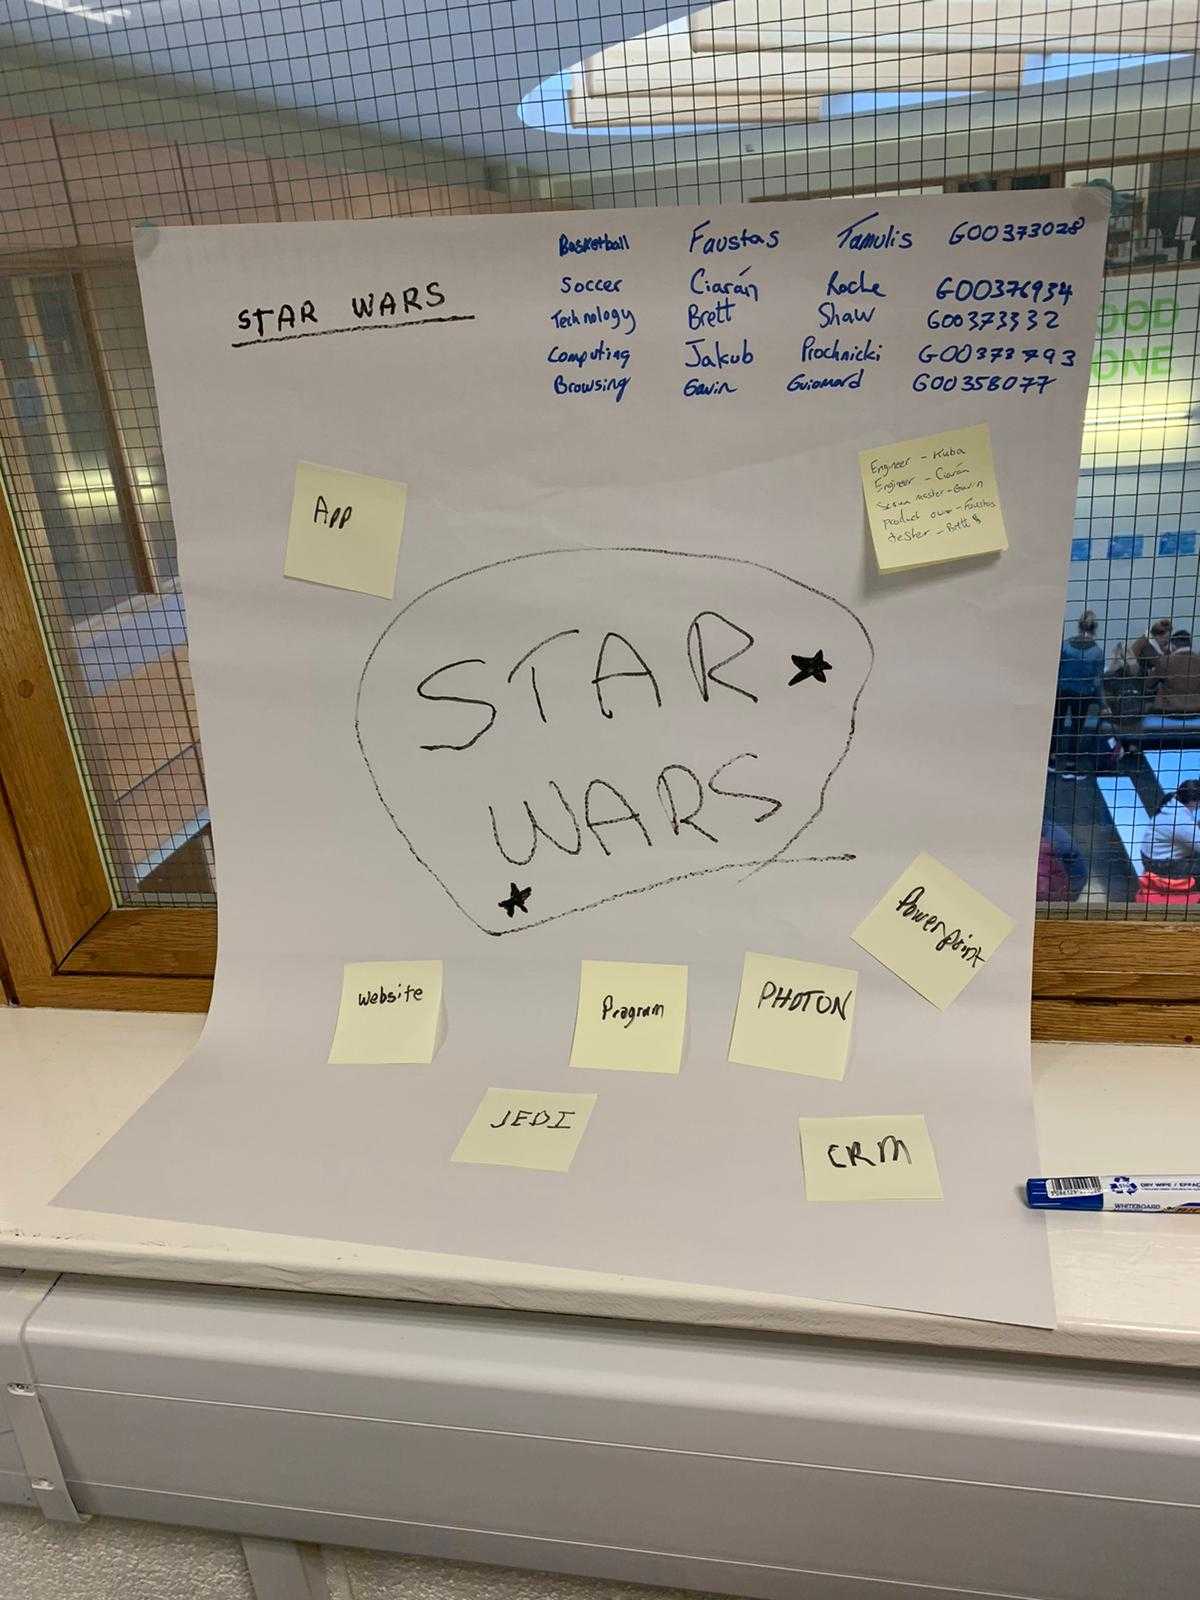 Basketball Faustas Tamulis G00373028
STAR WARS
Soccer Ciarán Roche G00376934
Technology Brett Shaw G00373332
Computing Jakub Prochnicki G00373793
Browsing Gavin Guiomard G00358077
OOD
ONE
App
Engineer - Kuba
Engineer - Ciarán
master - Gavin
product - Faustas
tester - Brett S
STAR
WARS
Powerpoint
Website
Program
PHOTON
JEDI
CRM
DRY WIPE / EFFAC
WHITEBOARD